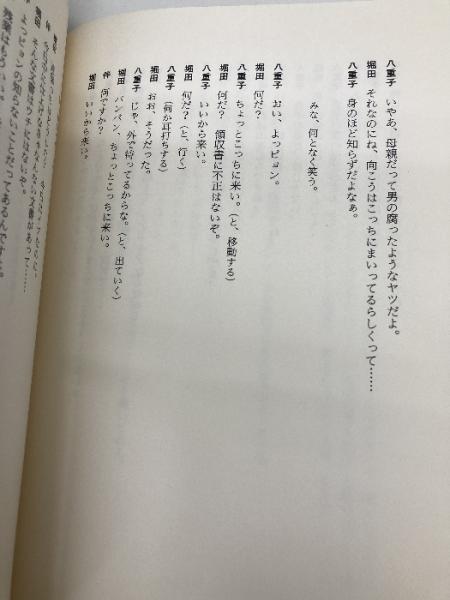 八重子　いやあ、母親だって男の腐ったようなヤツだよ。
堀田　それなのにね、向こうはこっちにまいってるらしくって……
八重子　身のほど知らずだよなぁ。
みな、何となく笑う。
八重子　おい、よっピョン。
堀田　何だ？
八重子　ちょっとこっちに来い。（と、移動する）
堀田　何だ？　領収書に不正はないぞ。
八重子　いいから来い。
堀田　何だ？（と、行く）
八重子　（何か耳打ちする）
堀田　おお、そうだった。
八重子　じゃ、外で待ってるからな。（と、出ていく）
堀田　バンバン、ちょっとこっちに来い。
伴　何ですか？
堀田　いいから来い。
そんな文書はウチにはないぞ。
よっピョンの知らないことだってあるんですよ。
残業はもういい。